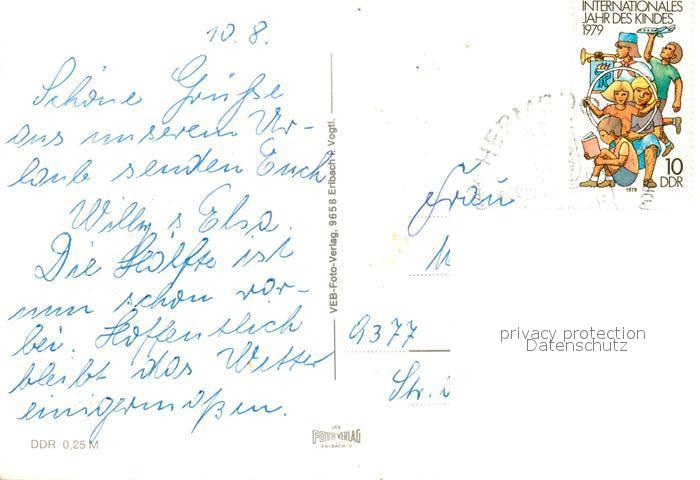 10. 8.
Schöne Grüße
aus unserem Ur-
laub senden Euch
Willy s Elsa.
Die Hälfte ist
nun schon vor-
bei. Hoffentlich
bleibt das Wetter
einigermaßen.
DDR 0,25 M
VEB-Foto-Verlag, 9658 Erlbach · Vogtl.
VEB
FOTO VERLAG
ERLBACH-V.
INTERNATIONALES
JAHR DES KINDES
1979
10
DDR
1979
HERMSD
Frau
9377
Str.
privacy protection
Datenschutz